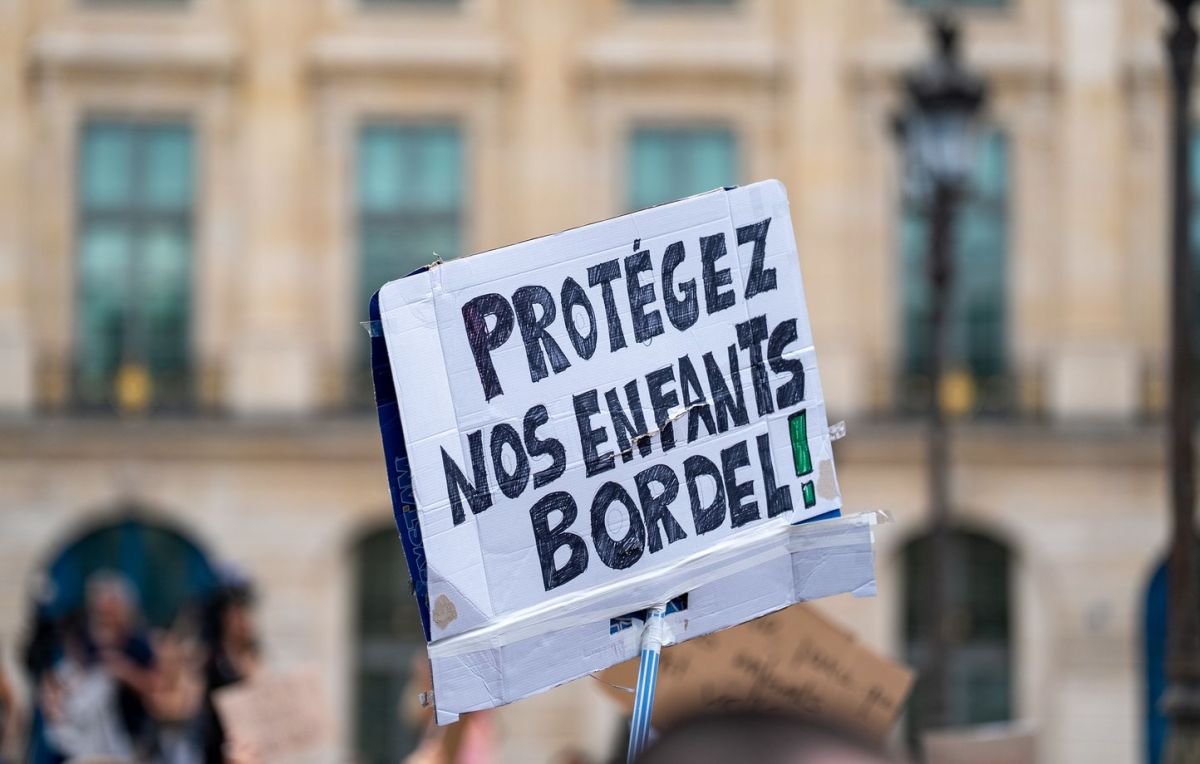 PROTÉGEZ
NOS ENFANTS
BORDEL!